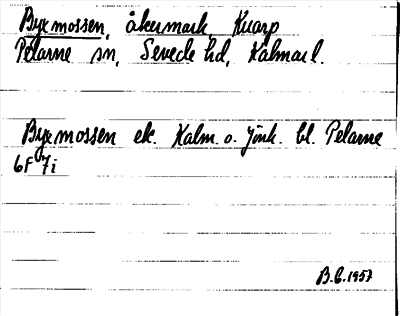 Byxmossen, åkermark, Kvarp
Pelarne sn, Sevede hd, Kalmar l.
Byxmossen ek. Kalm. o. Jönk. bl. Pelarne
6F 7i
B.E. 1957